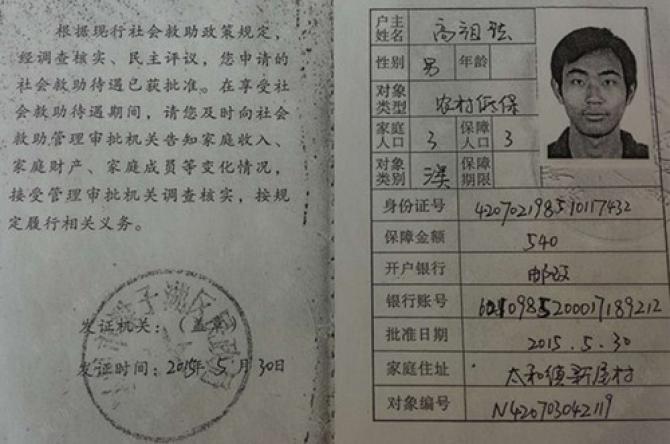 根据现行社会救助政策规定，
经调查核实、民主评议，您申请的
社会救助待遇已获批准。在享受社
会救助待遇期间，请您及时向社会
救助管理审批机关告知家庭收入、
家庭财产、家庭成员等变化情况，
接受管理审批机关调查核实，按规
定履行相关义务。
发证机关：（盖章）
发证时间：2015年5月30日
子湖区民政
户主姓名 高祖
性别 男 年龄
对象类型 农村低保
家庭人口 3 保障人口 3
对象类别 保障期限
身份证号 420702198510117432
保障金额 540
开户银行 邮政
银行账号
批准日期 2015.5.30
家庭住址 太和镇新屋村
对象编号 N420703042119